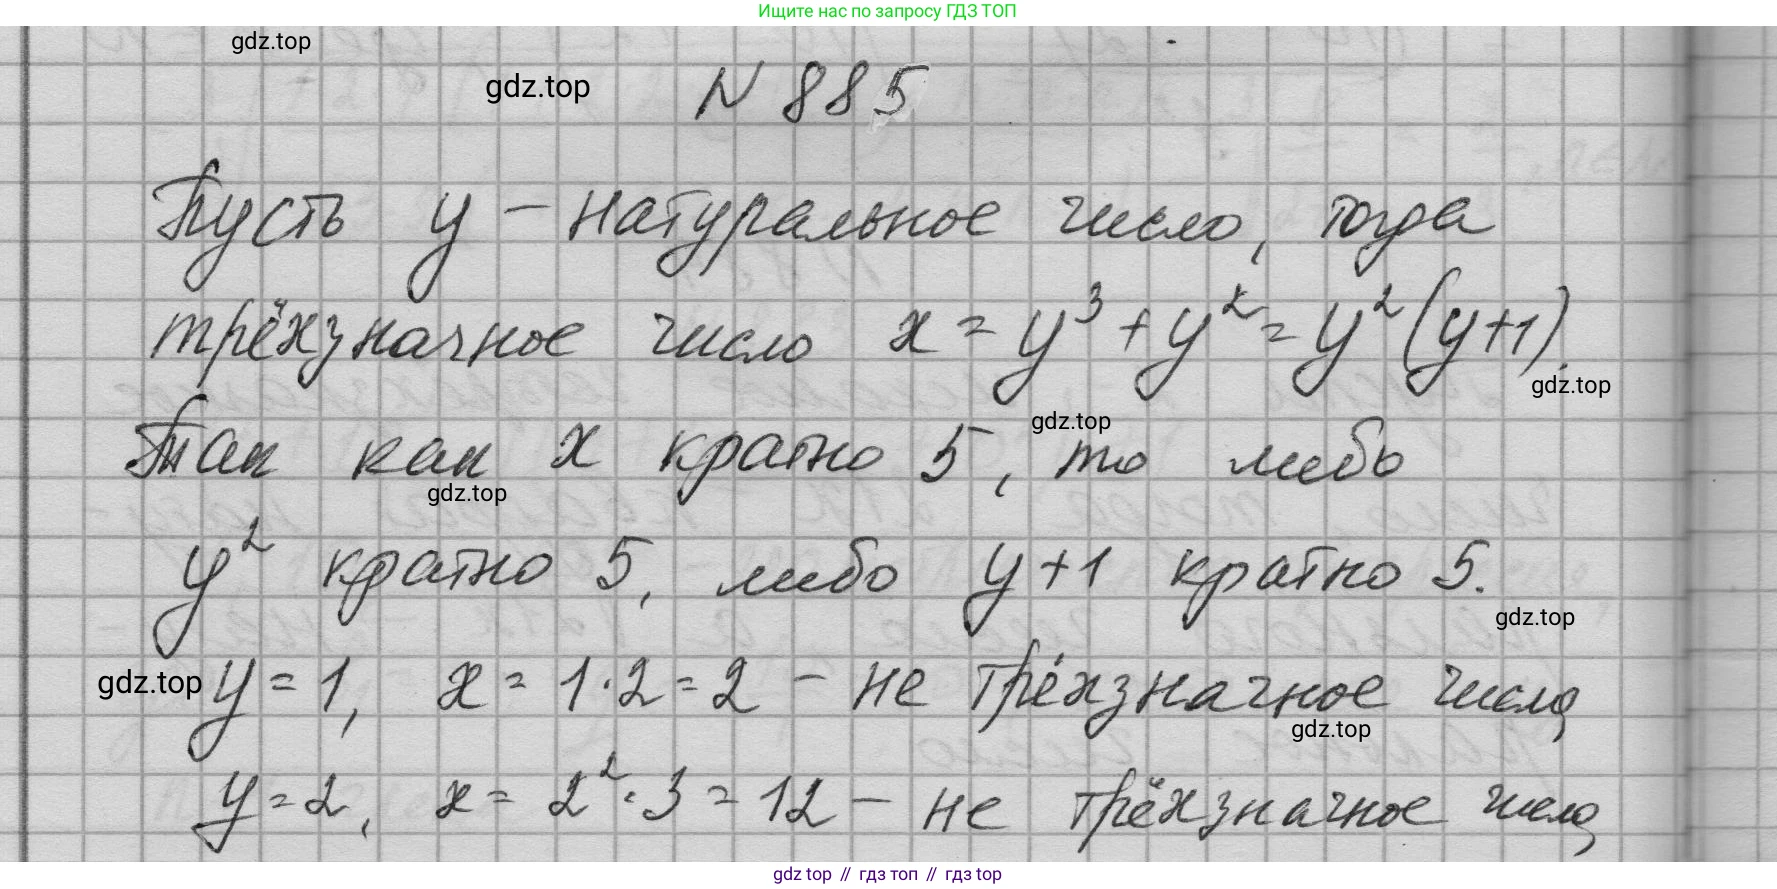 Ищите нас по запросу ГДЗ ТОП
gdz.top
gdz.top
N 885
Пусть y – натуральное число, тогда
трёхзначное число x = y³ + y² = y² (y+1).
gdz.top
gdz.top
Так как x кратно 5, то либо
gdz.top
y² кратно 5, либо y+1 кратно 5.
gdz.top
gdz.top
y = 1, x = 1·2 = 2 – не трёхзначное число,
gdz.top
y = 2, x = 2²·3 = 12 – не трёхзначное число,
gdz top // гдз топ // gdz top